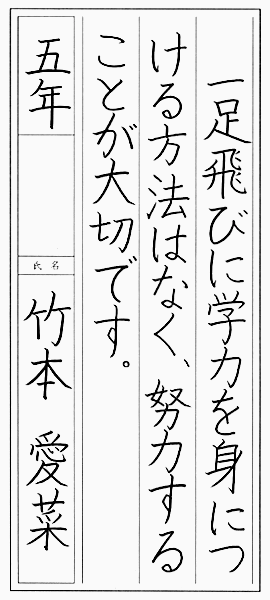 一足飛びに学力を身につ
ける方法はなく、努力する
ことが大切です。
五年
氏名
竹本 愛菜